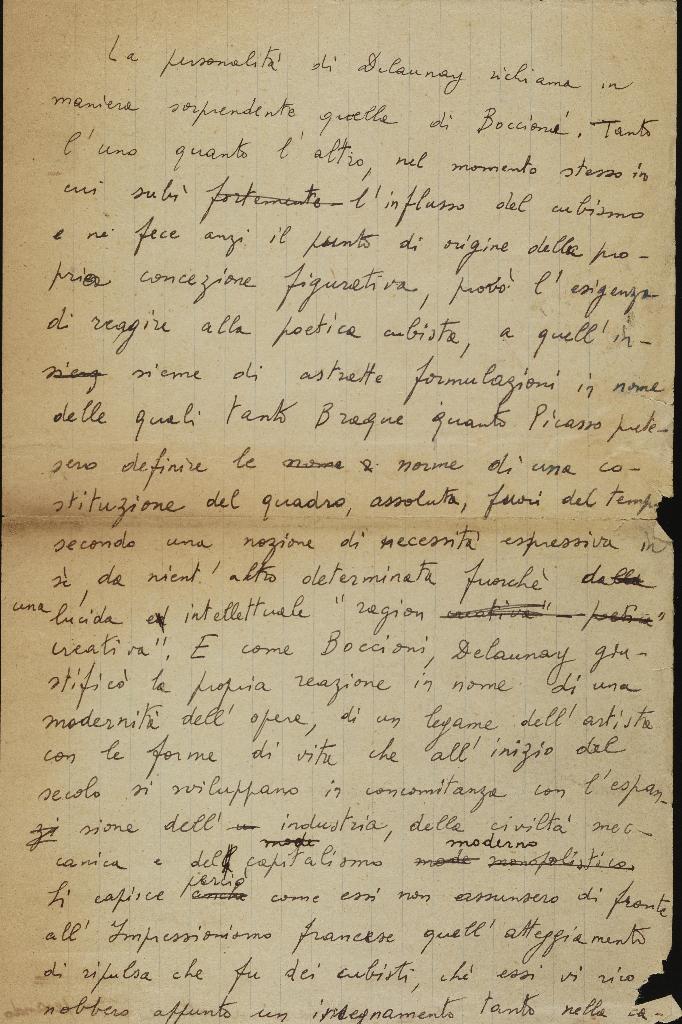 La personalità di Delaunay richiama in
maniera sorprendente quella di Boccioni. Tanto
l'uno quanto l'altro, nel momento stesso in
cui subì fortemente l'influsso del cubismo
e ne fece anzi il punto di origine della pro-
pria concezione figurativa, provò l'esigenza
di reagire alla poetica cubista, a quell'in-
sieme di astratte formulazioni in nome
delle quali tanto Braque quanto Picasso prete-
sero definire le norme di una co-
stituzione del quadro, assoluta, fuori del temp
secondo una nozione di necessità espressiva in
sè, da nient'altro determinata fuorchè dalla
una lucida ed intellettuale "ragion creativa"
creativa". E come Boccioni, Delaunay giu-
stificò la propria reazione in nome di una
modernità dell'opera, di un legame dell'artista
con le forme di vita che all'inizio del
secolo si sviluppano in concomitanza con l'espan-
sione dell'industria, della civiltà mec-
mode moderno
canica e del capitalismo mode monopolistico.
perciò
Si capisce anche come essi non assunsero di fronte
all'Impressionismo francese quell'atteggiamento
di ripulsa che fu dei cubisti, chè essi vi rico
nobbero appunto un insegnamento tanto nella ca-